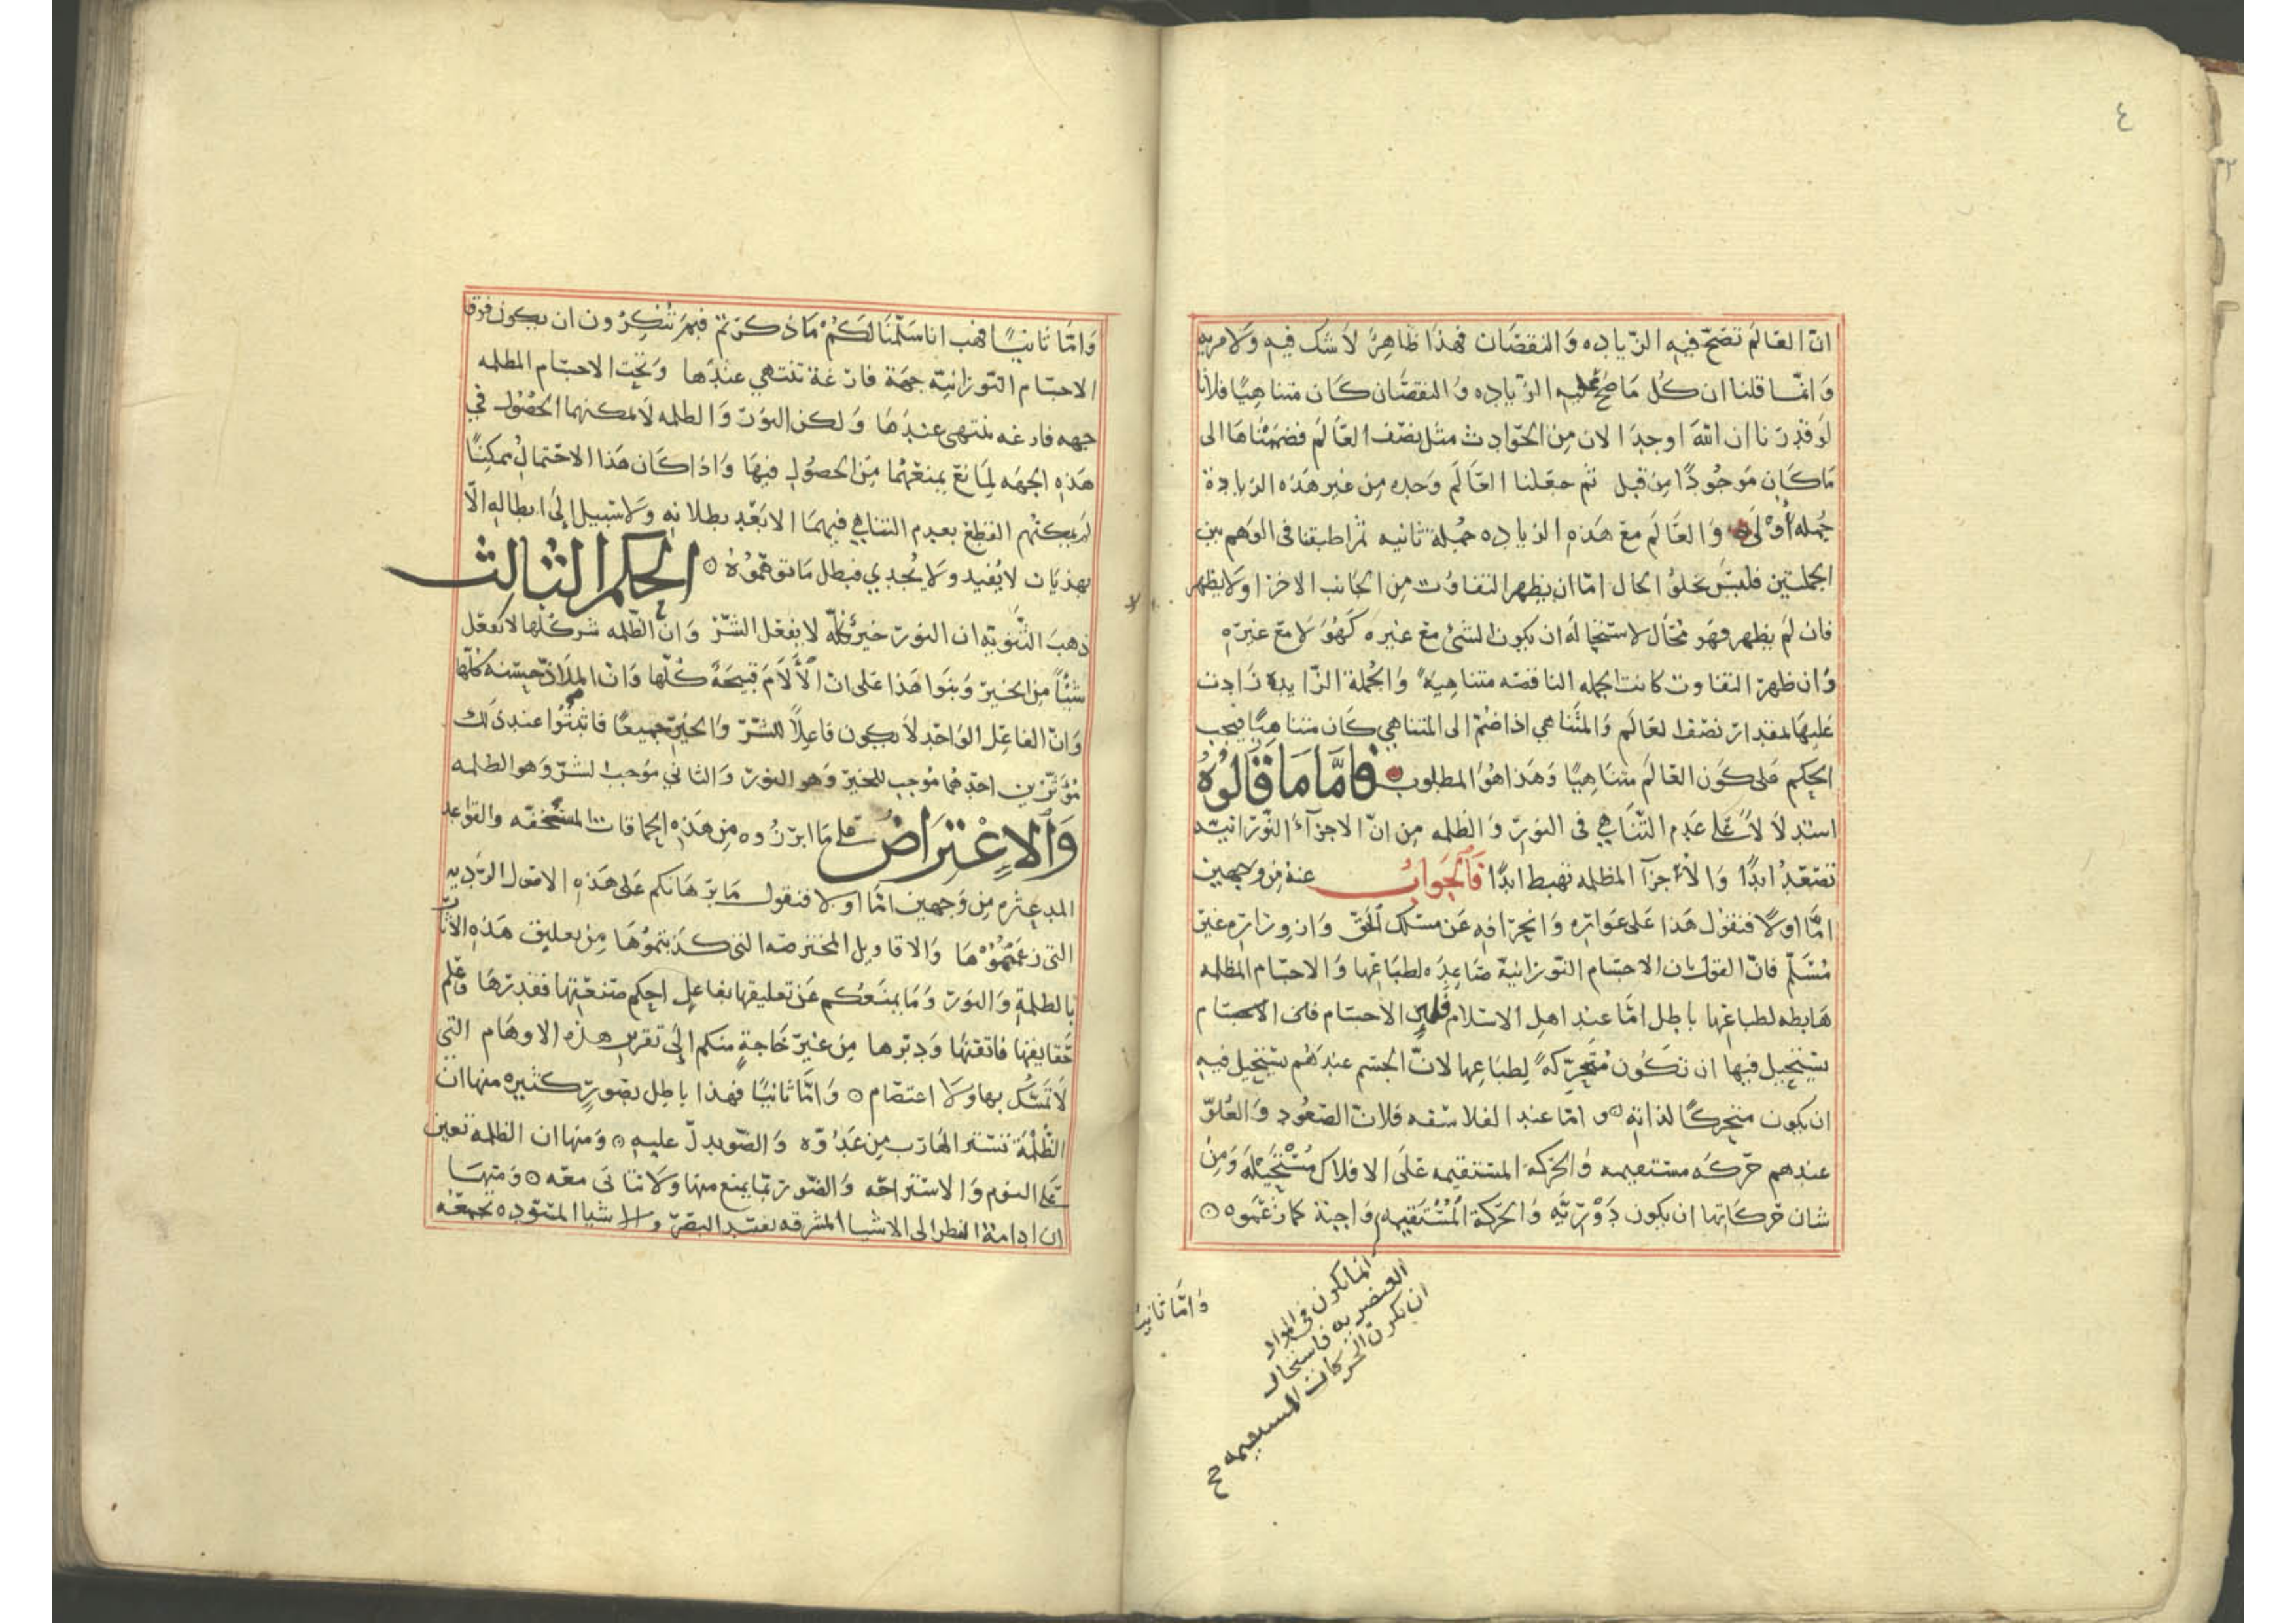 ٤
ان العالم تصح فيه الزياده والنقصان فهذا ظاهر لا شك فيه ولا مريه
وانما قلنا ان كل ما صح عليه الزياده والنقصان كان متناهيا فلانا
لو قدرنا ان الله اوجد الان من الحوادث مثل نصف العالم فضممناها الى
ما كان موجودا من قبل ثم جعلنا العالم وحده من غير هذه الزيادة
جمله أولى والعالم مع هذه الزياده جملة ثانيه ثم اطبقنا فى الوهم بين
الجملتين فليس يخلوا الحال اما ان يظهر التفاوت من الجانب الاخر او لا يظهر
فان لم يظهر فهو محال لاستحاله ان يكون الشئ مع غيره كهو لا مع غيره
وان ظهر التفاوت كانت الجمله الناقصه متناهية والجملة الزايدة زادت
عليها بمقدار نصف العالم والمتناهي اذا ضم الى المتناهي كان متناهيا فيجب
الحكم على كون العالم متناهيا وهذا هو المطلوب فاما ما قالوه
استدلالا على عدم التناهي فى النور والظلمه من ان الاجزآء النورانيه
تصعد ابدا والأجزآ المظلمه تهبط ابدا فالجواب عنه من وجهين
اما اولا فنقول هذا على عواره وانحرافه عن مسلك الحق وازوراره غير
مسلم فان القول بان الاجسام النورانية صاعده لطباعها والاجسام المظلمه
هابطه لطباعها باطل اما عند اهل الاسلام الاجسام فلان الاجسام
يستحيل فيها ان تكون متحركة لطباعها لان الجسم عندهم يستحيل فيه
ان يكون متحركا لذاته واما عند الفلاسفه فلان الصعود والعلو
عندهم حركه مستقيمه والحركة المستقيمه على الافلاك مستحيلة ومن
شان حركاتها ان يكون دورية والحركة المستقيمه واجبة كما زعموه
انما يكون فى المواد
العنصريه فاستحال
ان يكون الحركات المستقيمه
واما ثانيا
واما ثانيا فهب انا سلمنا لكم ما ذكرتم فبم تنكرون ان يكون فوق
الاجسام النورانيه جهة فارغة تنتهي عندها وتحت الاجسام المظلمه
جهه فارغه تنتهى عندها ولكن النور والظلمه لا يمكنهما الحصول في
هذه الجهه لمانع يمنعهما من الحصول فيها واذا كان هذا الاحتمال ممكنا
لم يمكنهم القطع بعدم التناهي فيهما الا بعد بطلانه ولا سبيل إلى ابطاله الا
بهذيان لا يفيد ولا يجدي فبطل ما توهموه الحكم الثالث
ذهب الثنويه ان النور خير كله لا يفعل الشر وان الظلمه شر كلها لا تفعل
شيئا من الخير وبنوا هذا على ان الألام قبيحة كلها وان الملاذ حسنه كلها
وان الفاعل الواحد لا يكون فاعلا للشر والخير جميعا فاثبتوا عند ذلك
مؤثرين احدهما موجب للخير وهو النور والثاني موجب لشر وهو الظلمه
والاعتراض على ما ابرزوه من هذه الحماقات المستخفه والقواعد
المدعثره من وجهين اما اولا فنقول ما برهانكم على هذه الاصول الرديه
التى زعمتموها والاقاويل المخترصه التى كذبتموها من تعليق هذه الاثار
بالظلمة والنور وما يمنعكم عن تعليقها بفاعل احكم صنعتها فقدرها وعلم
حقايقها فاتقنها ودبرها من غير حاجة منكم إلى تقرير هذه الاوهام التى
لا تمسك بها ولا اعتصام واما ثانيا فهذا باطل بصور كثيره منها ان
الظلمة تستر الهارب من عدوه والضو يدل عليه ومنها ان الظلمه تعين
على النوم والاستراحه والضو ربما يمنع منها ولا تتاتى معه ومنها
ان ادامة النظر الى الاشيا المشرقه يفسد البصر والاشيا المسوده تجمعه